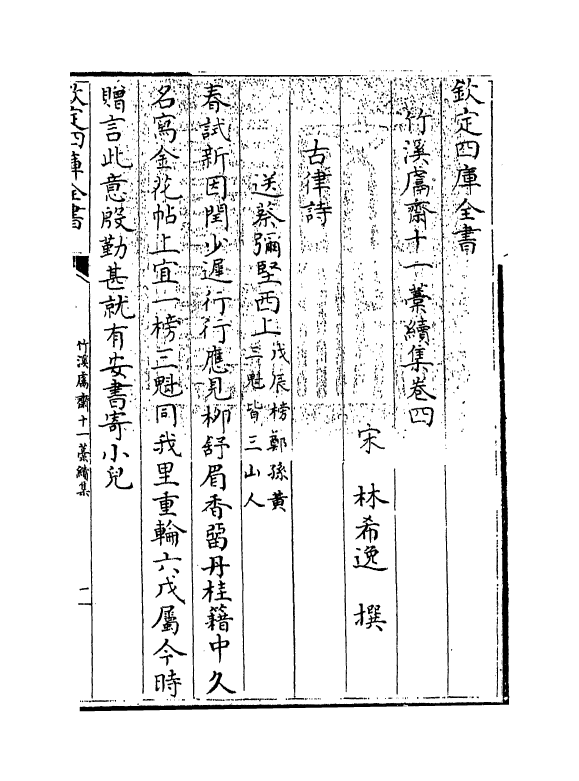 欽定四庫全書
竹溪鬳齋十一藳續集卷四
宋 林希逸 撰
古律詩
送蔡彌堅西上戊辰榜鄭孫黄
三魁皆三山人
春試新因閏少遲行行應見柳舒眉香留丹桂籍中久
名寫金花帖上宜一榜三魁同我里重輪六戊屬今時
贈言此意殷勤甚就有安書寄小兒
欽定四庫全書
竹溪鬳齋十一藳續集
一